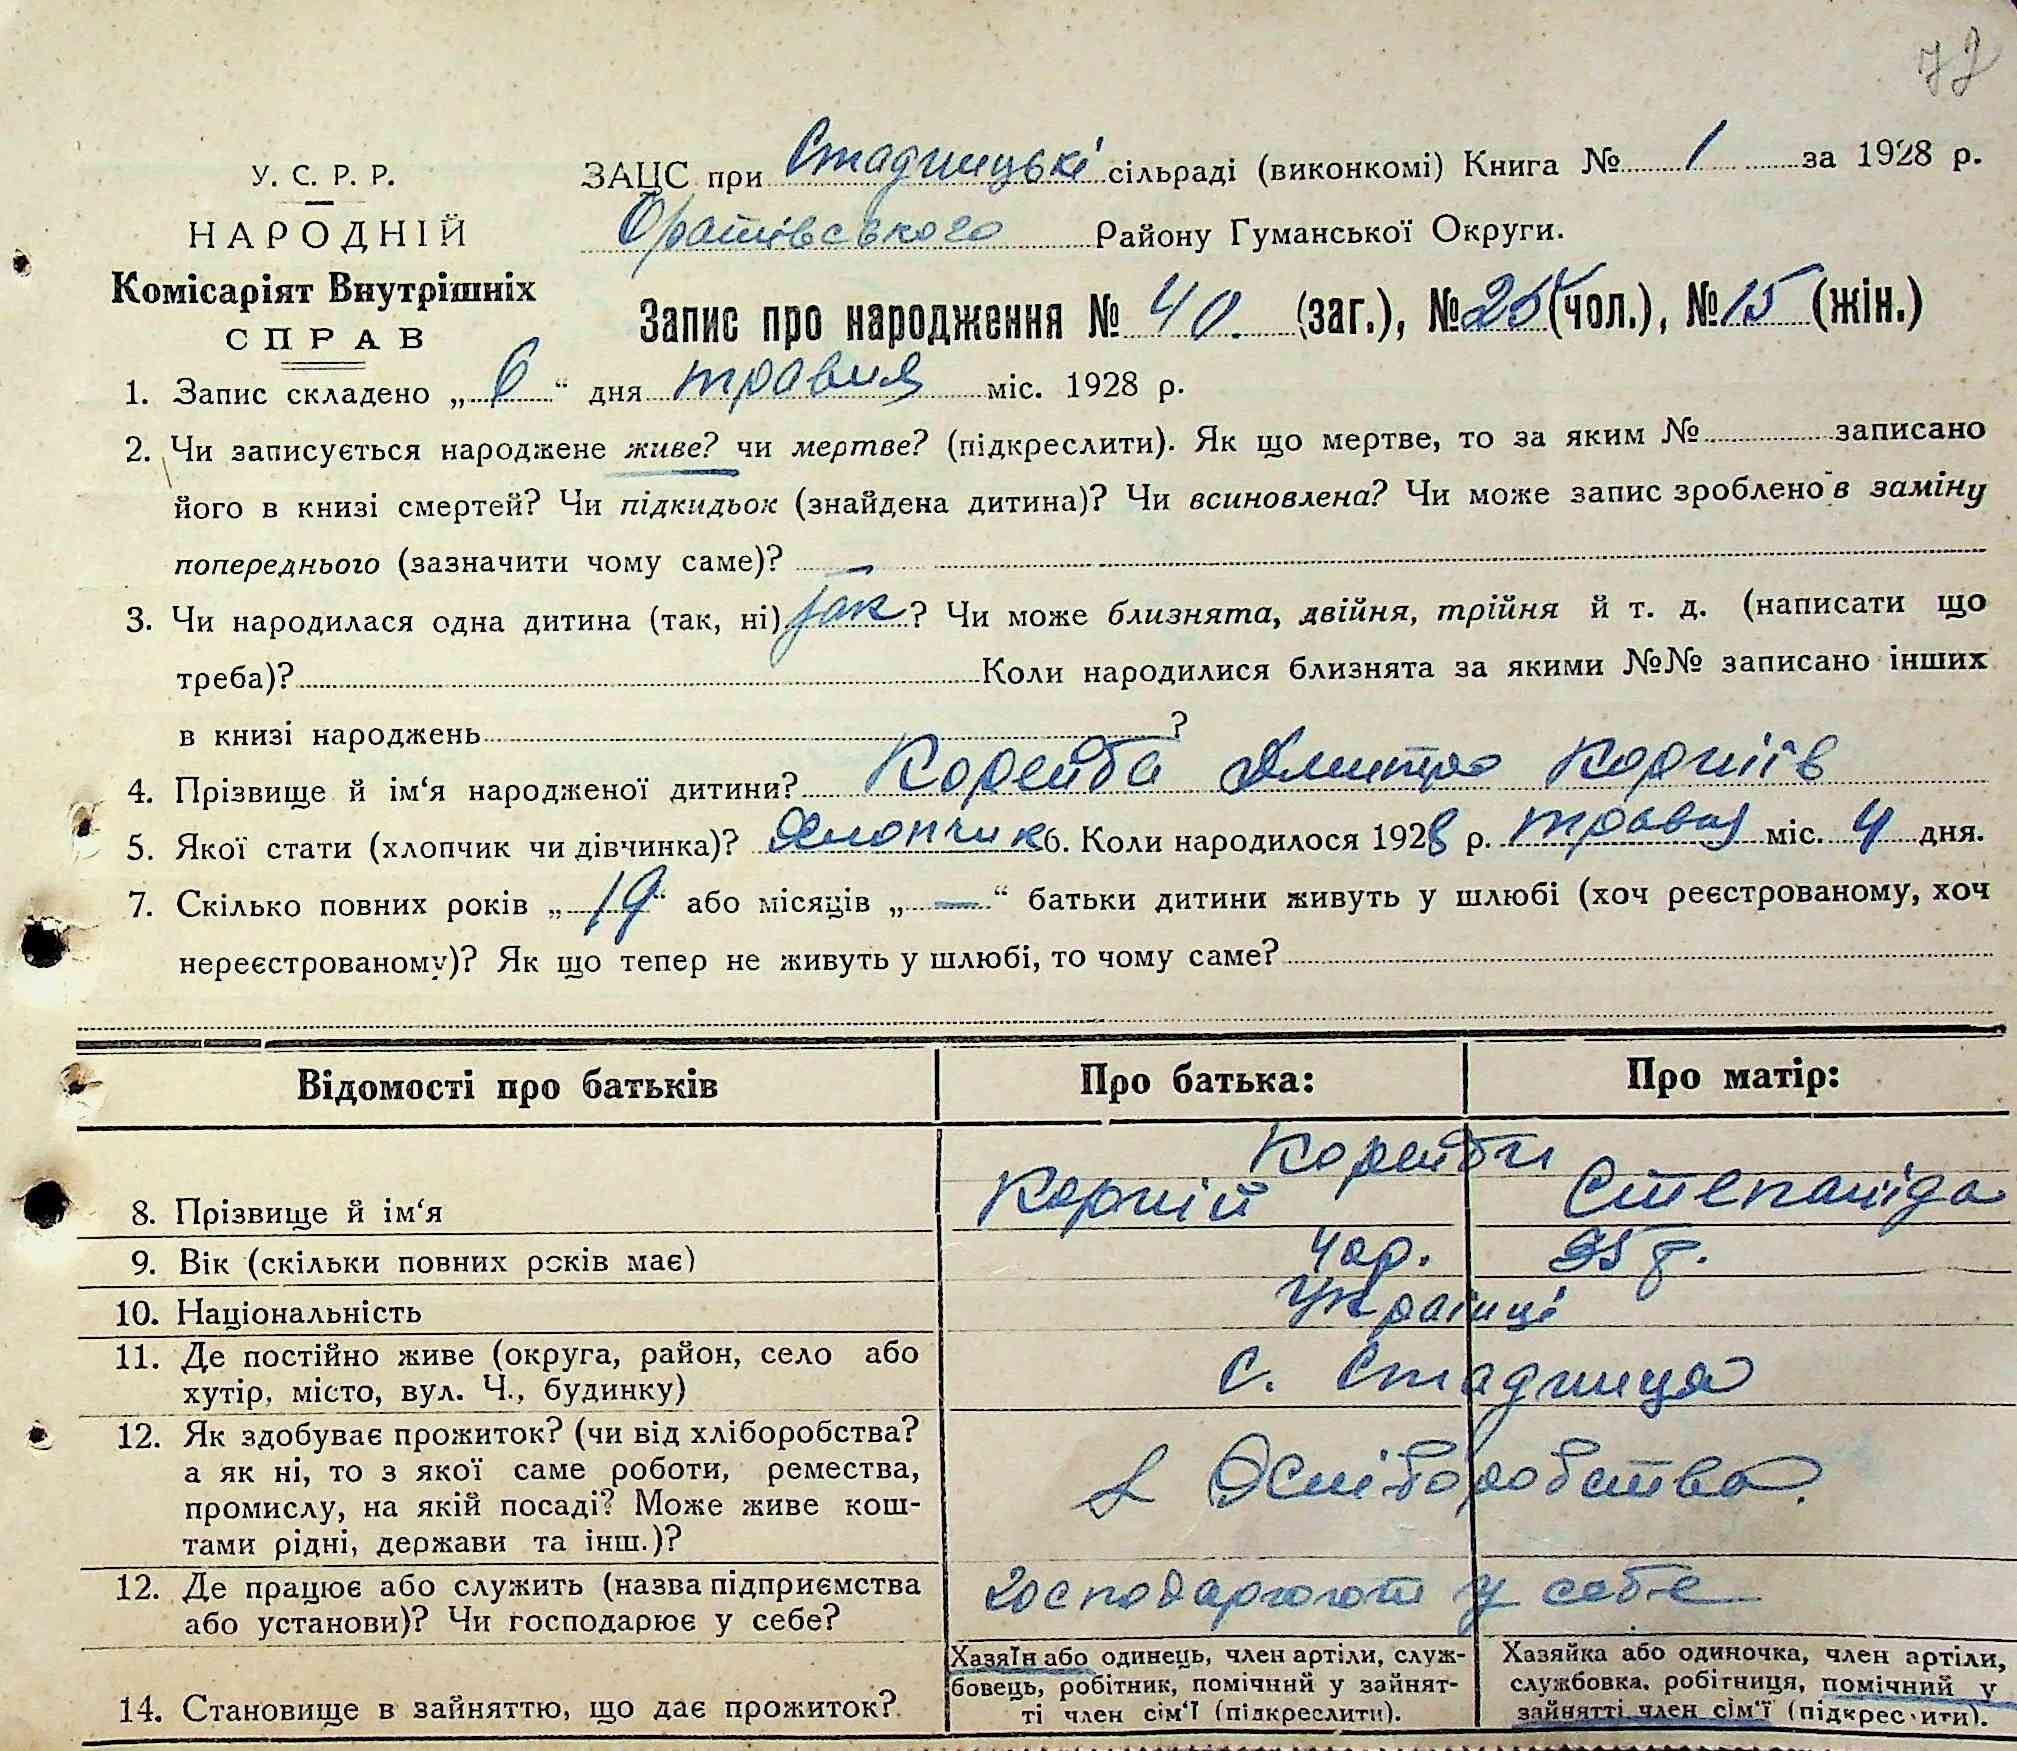 72
У. С. Р. Р.
НАРОДНІЙ
Комісаріят Внутрішніх
СПРАВ
ЗАЦС при Стадницькі сільраді (виконкомі) Книга № 1 за 1928 р.
Оратівського Району Гуманської Округи.
Запис про народження № 40. (заг.), № 25 (чол.), № 15 (жін.)
1. Запис складено „ 6 “ дня травня міс. 1928 р.
2. Чи записується народжене живе? чи мертве? (підкреслити). Як що мертве, то за яким № записано
його в книзі смертей? Чи підкидьок (знайдена дитина)? Чи всиновлена? Чи може запис зроблено в заміну
попереднього (зазначити чому саме)?
3. Чи народилася одна дитина (так, ні) так ? Чи може близнята, двійня, трійня й т. д. (написати що
треба)? Коли народилися близнята за якими №№ записано інших
в книзі народжень ?
4. Прізвище й ім‘я народженої дитини? Корейба Дмитро Корніїв
5. Якої стати (хлопчик чи дівчинка)? Хлопчик 6. Коли народилося 1928 р. травня міс. 4 дня.
7. Скілько повних років „ 19 “ або місяців „ — “ батьки дитини живуть у шлюбі (хоч реєстрованому, хоч
нереєстрованому)? Як що тепер не живуть у шлюбі, то чому саме?
Відомості про батьків Про батька: Про матір:
Корейби
8. Прізвище й ім‘я Корній Степаніда
9. Вік (скільки повних років має) 40р. 35 р.
10. Національність Українці
11. Де постійно живе (округа, район, село або
хутір, місто, вул. Ч., будинку) С. Стадниця
12. Як здобуває прожиток? (чи від хліборобства?
а як ні, то з якої саме роботи, ремества,
промислу, на якій посаді? Може живе кош-
тами рідні, держави та інш.)? Хліборобства.
12. Де працює або служить (назва підприємства
або установи)? Чи господарює у себе? господарюют у себе
14. Становище в зайняттю, що дає прожиток?
Хазяїн або одинець, член артіли, служ-
бовець, робітник, помічний у зайнят-
ті член сім‘ї (підкреслити).
Хазяйка або одиночка, член артіли,
службовка, робітниця, помічний у
зайнятті член сім‘ї (підкреслити).